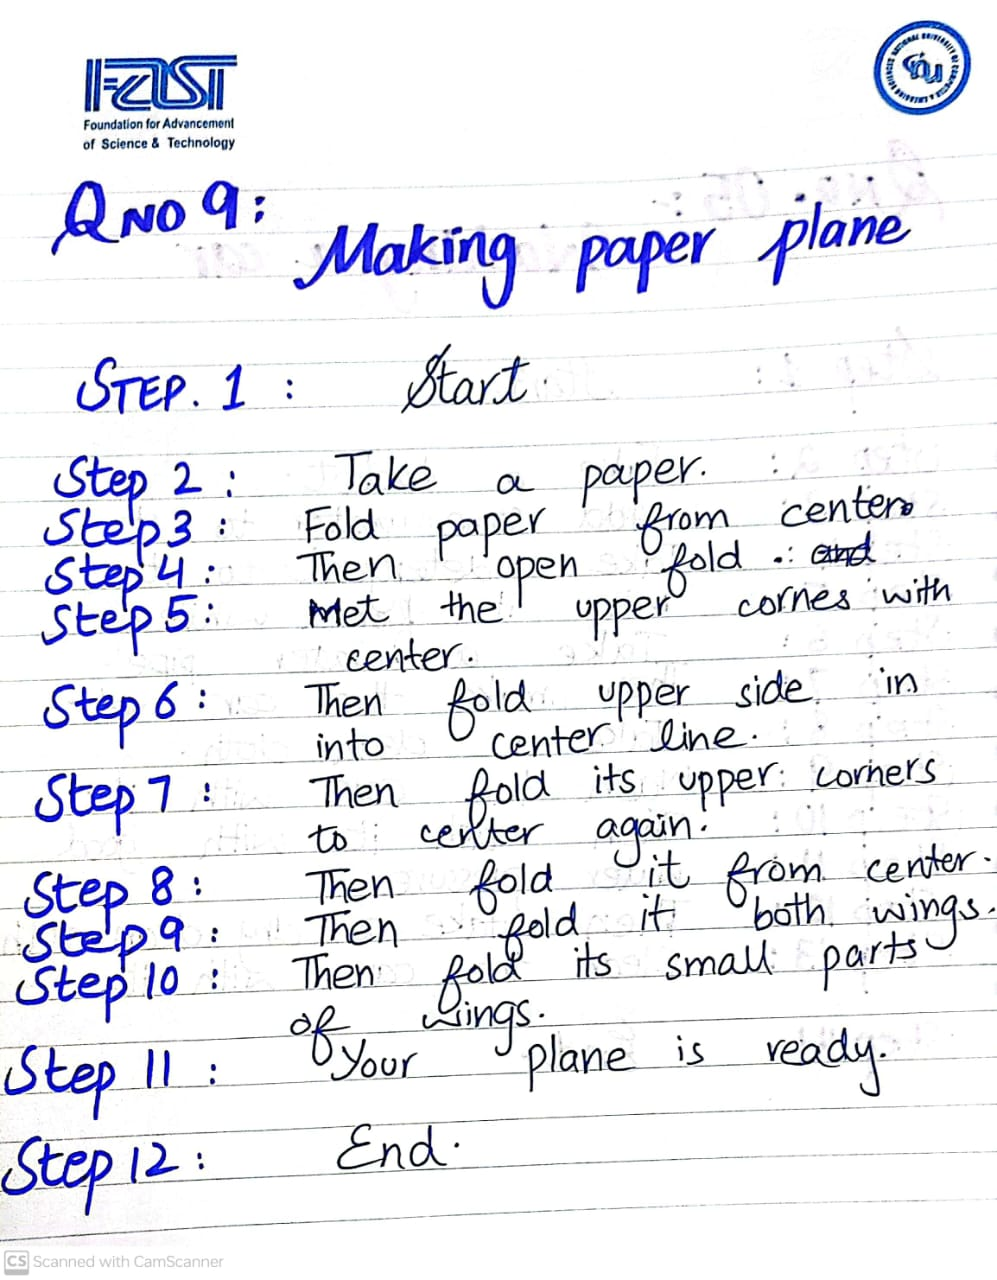 FAST
Foundation for Advancement
of Science & Technology
NATIONAL UNIVERSITY OF COMPUTER & EMERGING SCIENCES
nu
Q NO 9:
Making paper plane
STEP. 1 : Start.
Step 2 : Take a paper.
Step 3 : Fold paper from center.
Step 4 : Then open fold . and
Step 5 : Met the upper cornes with
center.
Step 6 : Then fold upper side in
into center line.
Step 7 : Then fold its upper corners
to center again.
Step 8 : Then fold it from center.
Step 9 : Then fold it both wings.
Step 10 : Then fold its small parts
of wings.
Step 11 : Your plane is ready.
Step 12 : End.
CS Scanned with CamScanner